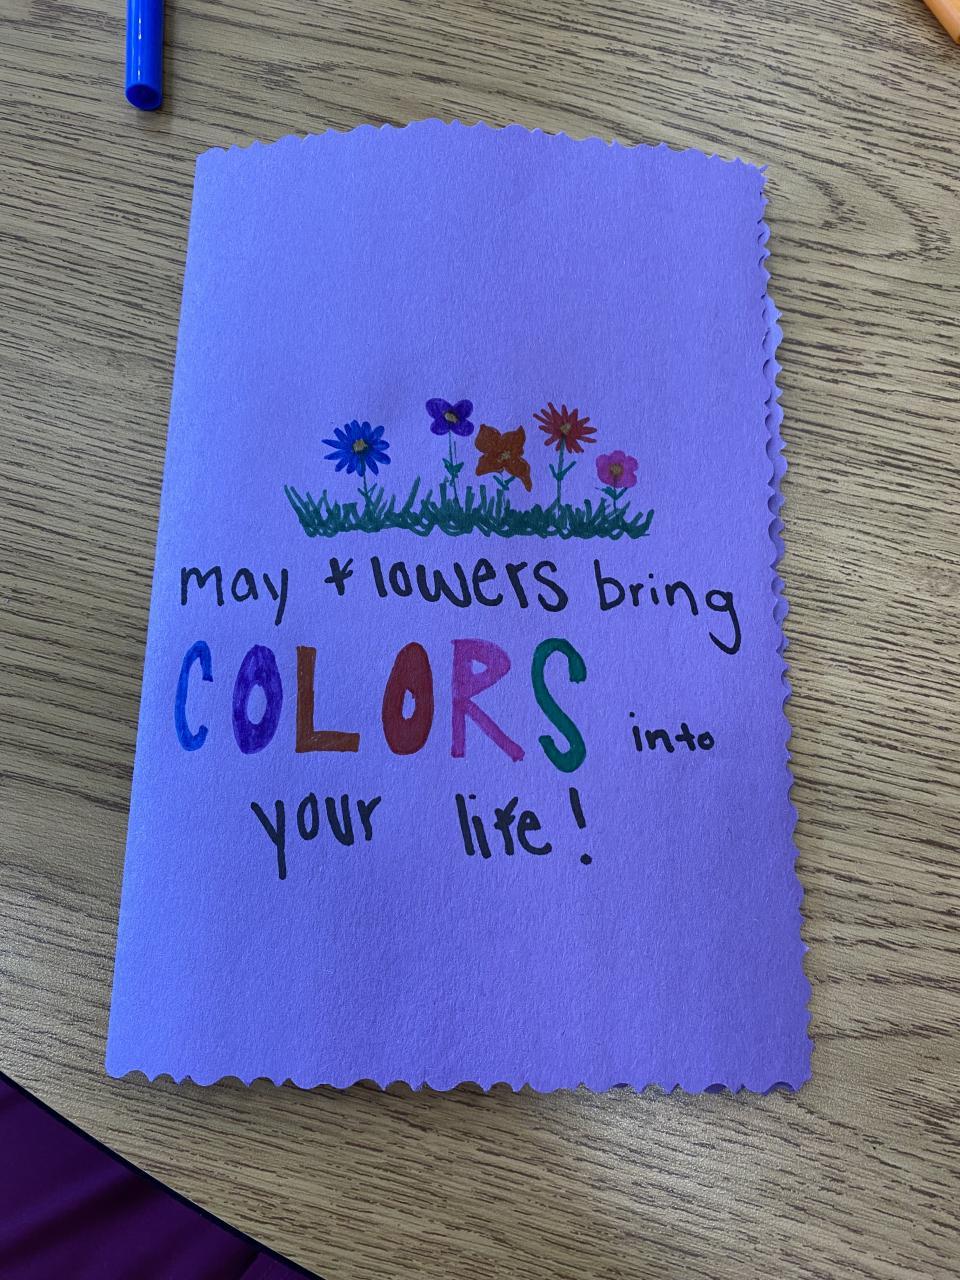 may flowers bring
COLORS into
your life!